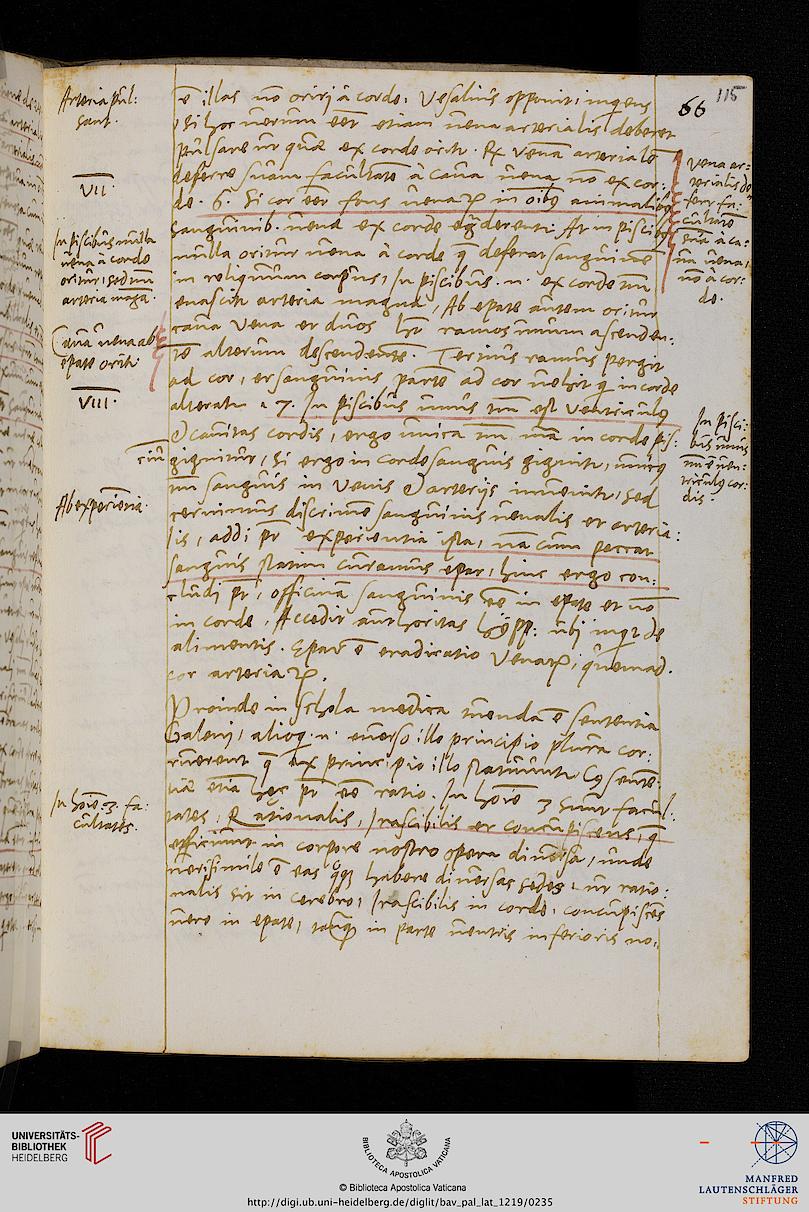 115
66
Arteria pul:
sant.
VII.
In piscibus nulla
uena à corde
oritur, sed tm̄
arteria magā.
Caua uena ab
epate orit̃
VIII.
Ab experientia.
In hoīe 3. fa:
cultates.
ē illas nō oriri à corde. Vesalius opponit, inquiens
si hoc uerum eēt etiam uena arterialis deberet
pulsare ut quae ex corde orit̃. Rx Venā arterialē
deferre suam facultatē à caua uena, nō ex cor:
de. 6. Si cor eēt fons uenarū in oībus animalibus
sanguinib. uenae ex corde egrederent̃. At in piscibus
nulla oritur uena à corde quae deferat sanguinem
in reliquum corpus, In piscibus .n. ex corde tm̄
enascit̃ arteria magna, Ab epate autem oritur
caua Vena et duos hēt ramos unum ascenden:
tē alterum descendentē. Tertius ramus pergit
ad cor, et sanguinis partē ad cor uehit quae in corde
alteratur. 7. In piscibus unus tm̄ est Ventriculus
& cauitas cordis, ergo unica tm̄ mā in corde pis:
cium gignitur, si ergo in corde sanguis gignit̃, unicus
tm̄ sanguis in Venis & arterijs inuenit̃, sed
cernimus discrimē sanguinis uenalis et arteria:
lis, addi pt̄ experientia ista, nā cum peccat
sanguis statim curamus epar, hinc ergo con:
cludi pt̄, officinā sanguinis eē in epate et nō
in corde. Accedit authoritas Hipp. ubi inqt de
alimentis. Epar ē eradicatio Venarū, quemad.
cor arteriarū.
Proinde in schola medica tuenda ē sententia
Galeni, alioq. .n. euerso illo principio plura cor:
ruerent quae ex principio illo statuunt̃. Cuius senten:
tiae etiā haec pt̄ eē ratio. In hoīe 3 sunt facul:
tates, Rationalis, Irascibilis et concupiscens, quae
efficiunt in corpore nostro opera diuersa, unde
uerisimile ē eas quoque habere diuersas sedes, ut ratio:
nalis sit in cerebro, Irascibilis in corde, concupiscēs
uero in epate, tanquam in parte uentris inferioris no:
Vena ar=
terialis de
fert fa:
cultatē
suā à ca:
ua uena,
nō à cor:
de.
In pisci:
bus unus
tm̄ ē uen:
triculus cor:
dis.
UNIVERSITÄTS-
BIBLIOTHEK
HEIDELBERG
BIBLIOTHECA APOSTOLICA VATICANA
© Biblioteca Apostolica Vaticana
http://digi.ub.uni-heidelberg.de/diglit/bav_pal_lat_1219/0235
MANFRED
LAUTENSCHLÄGER
STIFTUNG